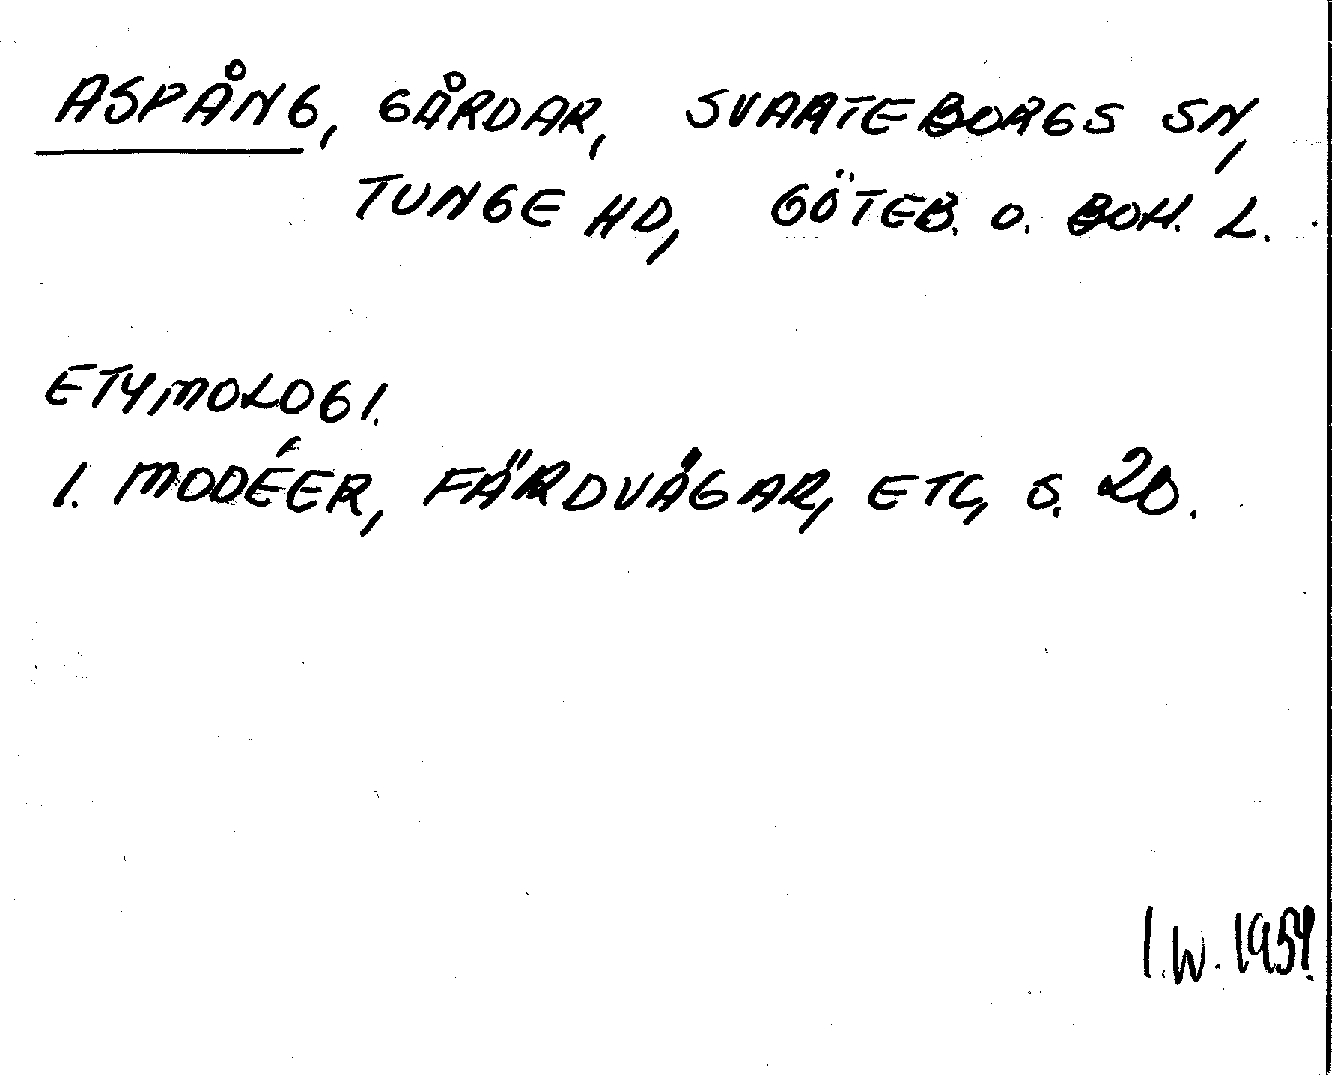 ASPÅNG, GÅRDAR, SVARTEBORGS SN,
TUNGE HD, GÖTEB. O. BOH. L.
ETYMOLOGI.
1. MODÉER, FÄRDVÄGAR, ETC, S. 20.
I.W. 1959.